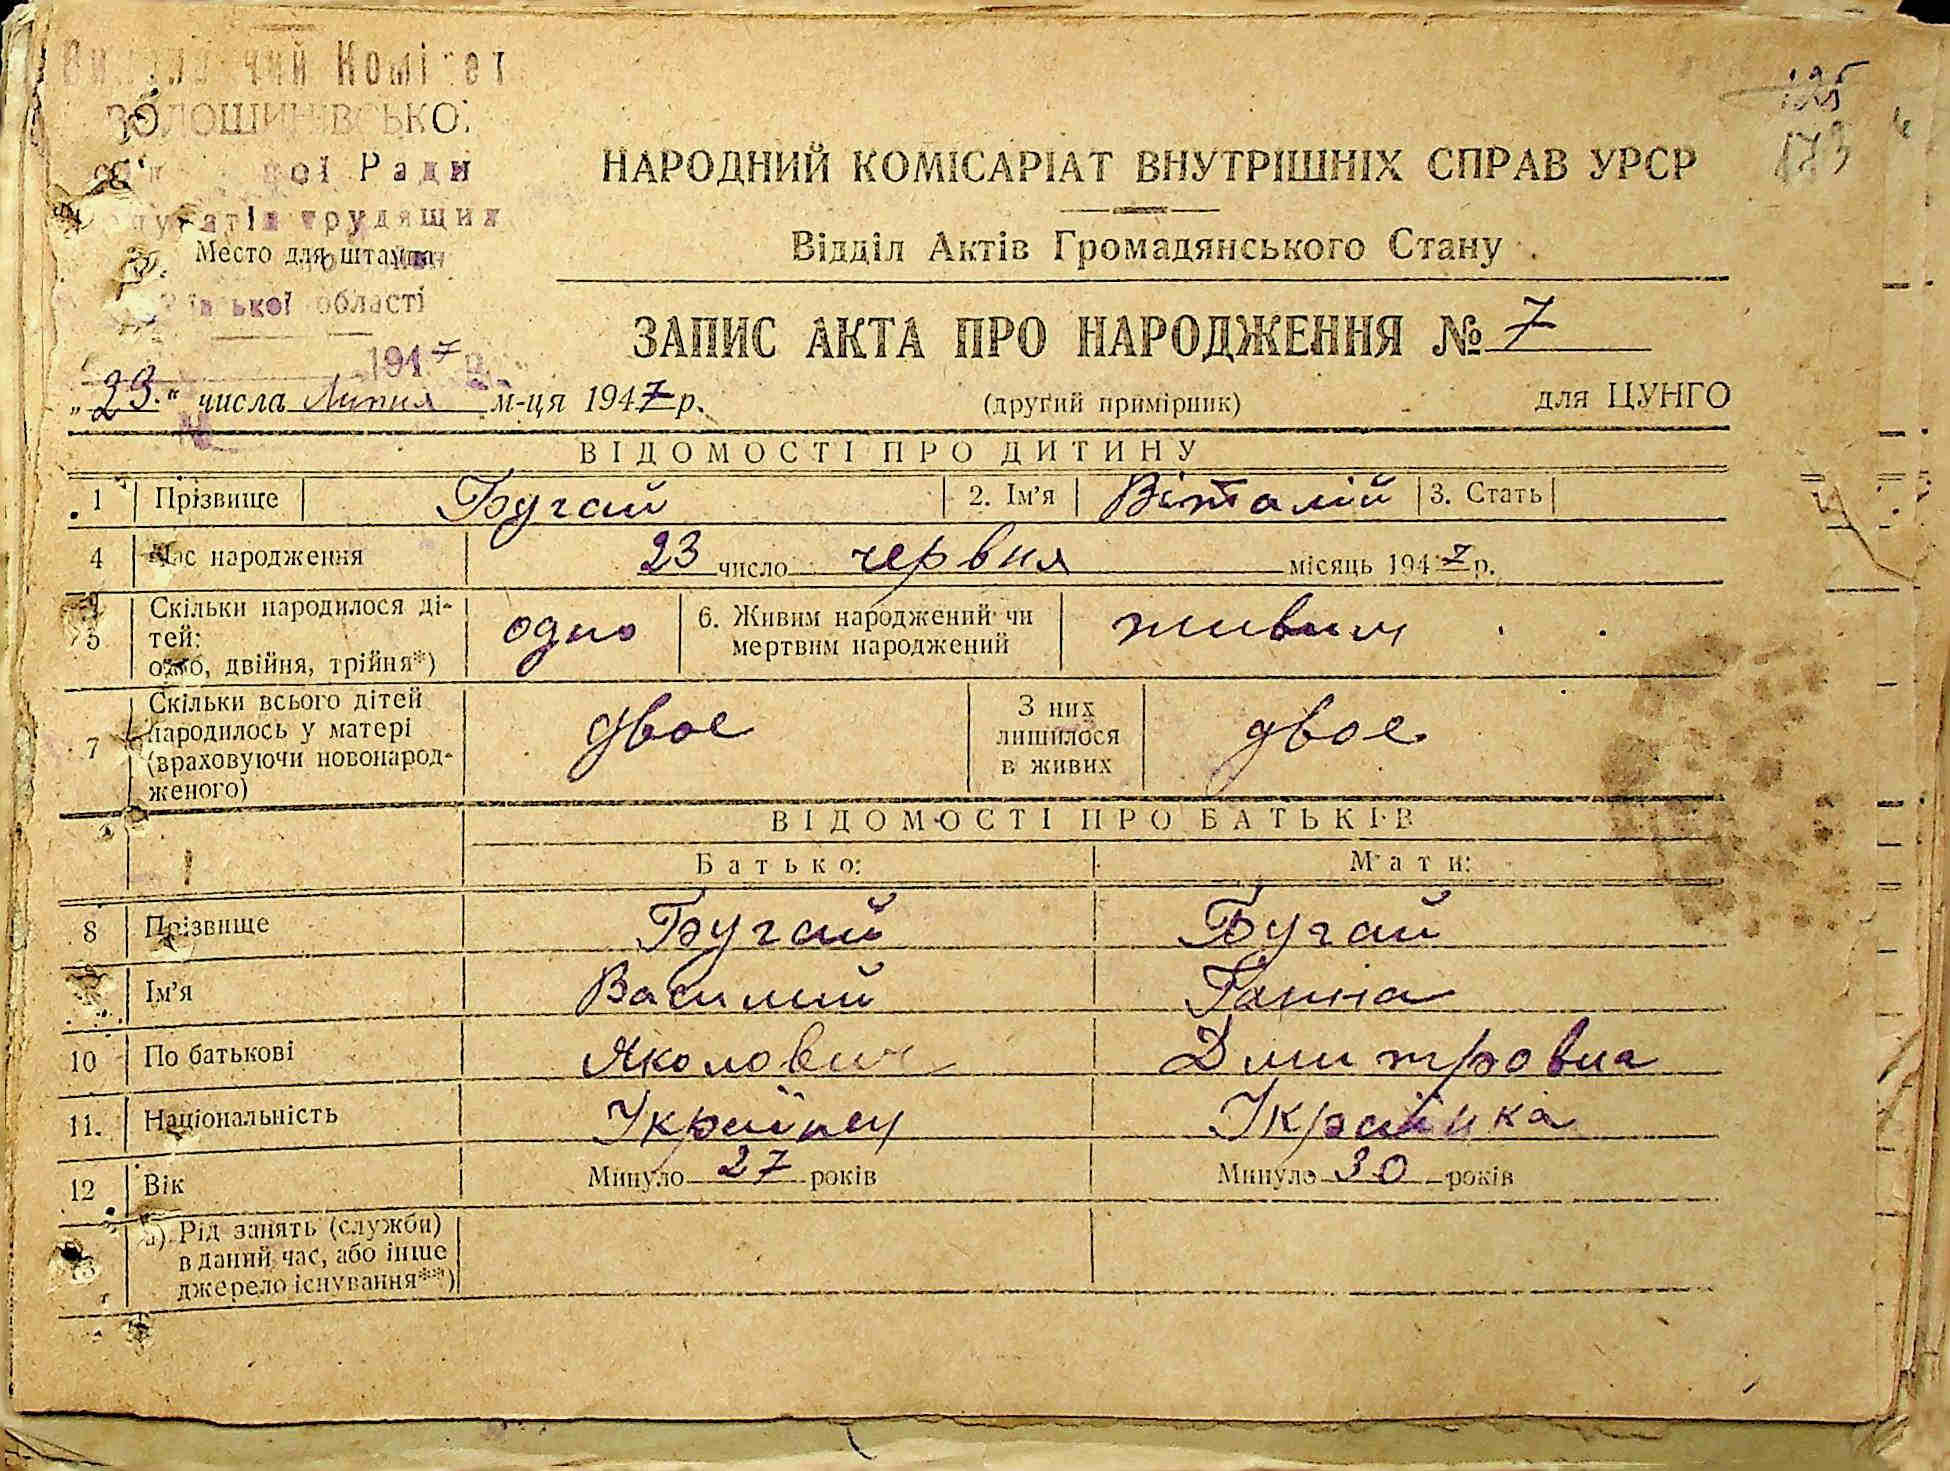 Комітет
ЗОЛОШИНІВСЬКОЇ
Ради
трудящих
Место для штампа
області
1947 р.
НАРОДНИЙ КОМІСАРІАТ ВНУТРІШНІХ СПРАВ УРСР
Відділ Актів Громадянського Стану
ЗАПИС АКТА ПРО НАРОДЖЕННЯ № 7
„23.“ числа Липня м-ця 1947 р. (другий примірник) для ЦУНГО
ВІДОМОСТІ ПРО ДИТИНУ
1 Прізвище Бугай 2. Ім’я Віталій 3. Стать
4 Час народження 23 число червня місяць 1947 р.
5 Скільки народилося ді-
тей:
одно, двійня, трійня*) одно 6. Живим народжений чи
мертвим народжений живим
7 Скільки всього дітей
народилось у матері
(враховуючи новонарод-
женого) двое З них
лишилося
в живих двое
ВІДОМОСТІ ПРО БАТЬКІВ
Батько: Мати:
8 Прізвище Бугай Бугай
9 Ім’я Василий Ганна
10 По батькові Яколович Дмитровна
11. Національність Украінец Украінка
12 Вік Минуло 27 років Минуло 30 років
а) Рід занять (служби)
в даний час, або інше
джерело існування**)